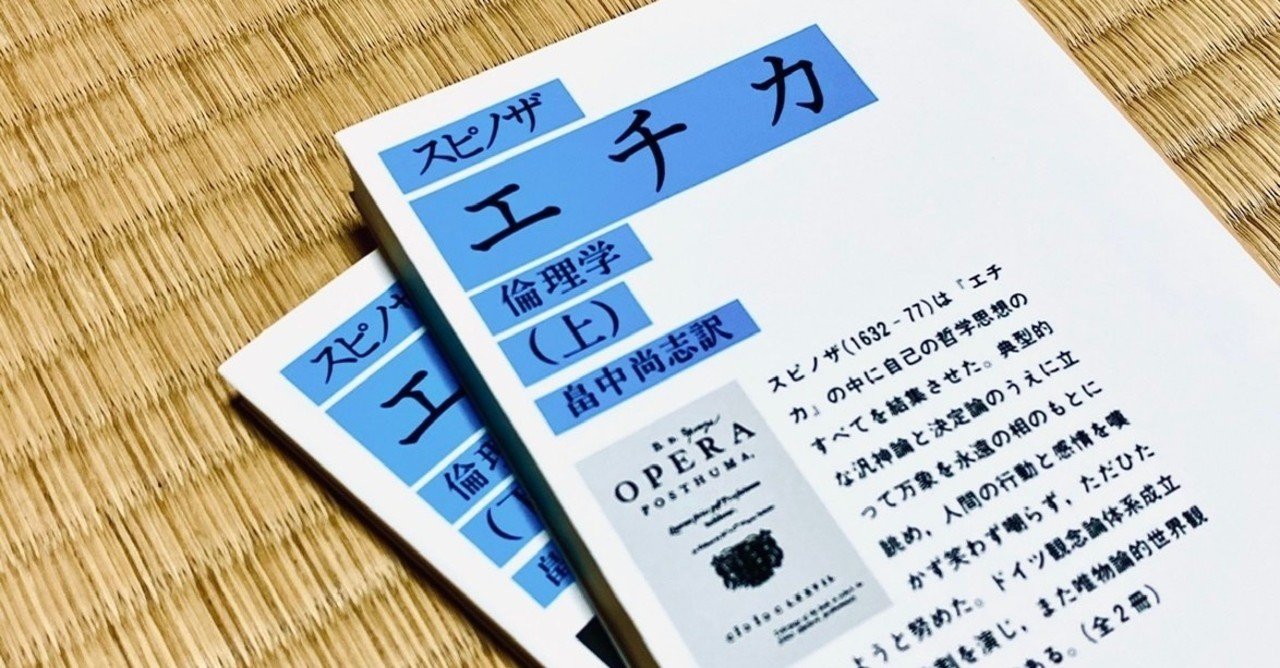 スピノザ
エチカ
倫理学
(上)
畠中尚志訳
スピノザ(1632-77)は『エチ
カ』の中に自己の哲学思想の
すべてを結集させた。典型的
な汎神論と決定論のうえに立
って万象を永遠の相のもとに
眺め,人間の行動と感情を嘆
かず笑わず嘲らず,ただひた
ようと努めた。ドイツ観念論体系成立
割を演じ,また唯物論的世界観
る。(全2冊)
OPERA
POSTHUMA,
スピノ
エ
倫理
(下
畠